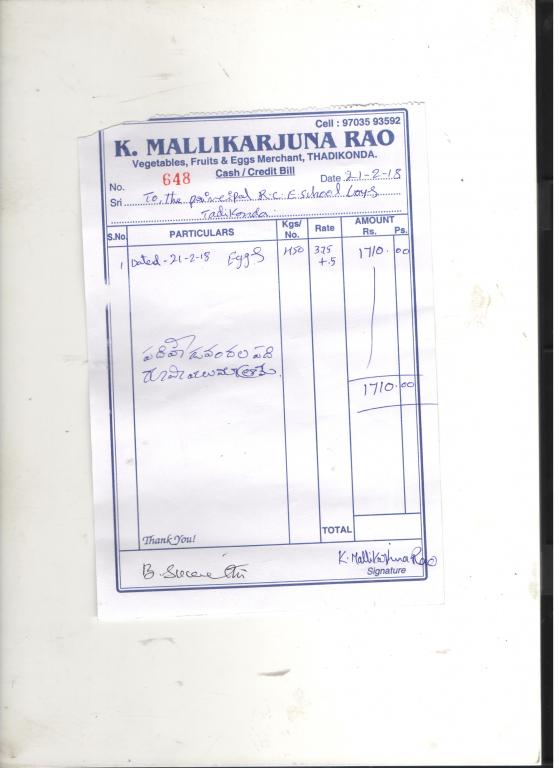 Cell : 97035 93592
K. MALLIKARJUNA RAO
Vegetables, Fruits & Eggs Merchant, THADIKONDA.
Cash / Credit Bill
No. 648 Date 21-2-18
Sri To, The principal R.C.E. School boys
Tadikonda
S.No. PARTICULARS Kgs/ No. Rate AMOUNT Rs. Ps.
1 Dated - 21-2-18 Eggs 450 375 +.5 1710.00
1710.00
Thank You! TOTAL
K. Mallikarjuna Rao
Signature